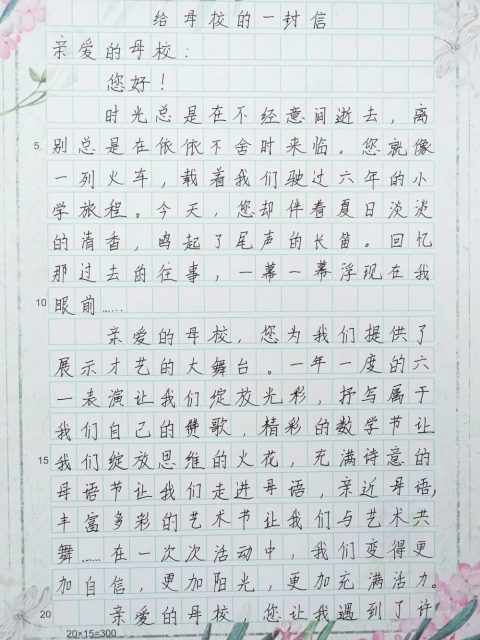 给母校的一封信
亲爱的母校：
您好！
时光总是在不经意间逝去，离
5 别总是在依依不舍时来临。您就像
一列火车，载着我们驶过六年的小
学旅程。今天，您却伴着夏日淡淡
的清香，鸣起了尾声的长笛。回忆
那过去的往事，一幕一幕浮现在我
10 眼前……
亲爱的母校，您为我们提供了
展示才艺的大舞台。一年一度的六
一表演让我们绽放光彩，抒写属于
我们自己的赞歌，精彩的数学节让
15 我们绽放思维的火花，充满诗意的
母语节让我们走进母语，亲近母语，
丰富多彩的艺术节让我们与艺术共
舞……在一次次活动中，我们变得更
加自信，更加阳光，更加充满活力。
20 亲爱的母校，您让我遇到了许
20×15=300